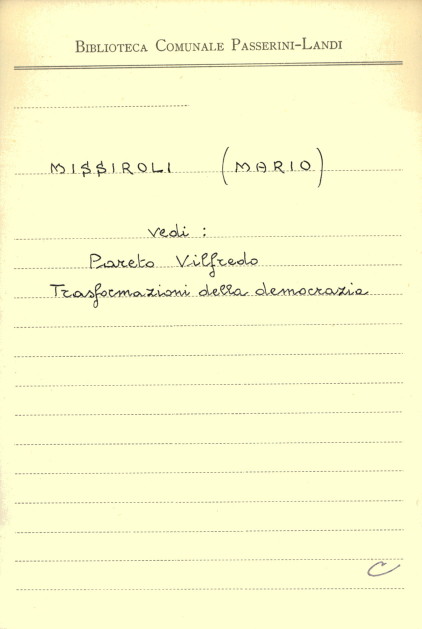 Biblioteca Comunale Passerini-Landi
MISSIROLI (MARIO)
vedi :
Pareto Vilfredo
Trasformazioni della democrazia
C